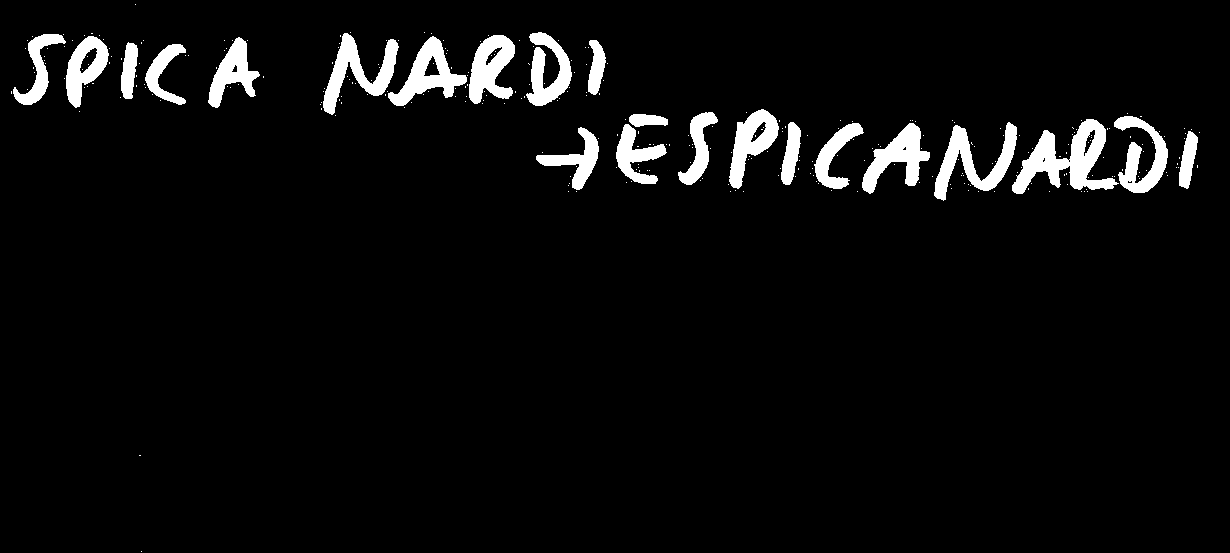 SPICA NARDI
→ESPICANARDI